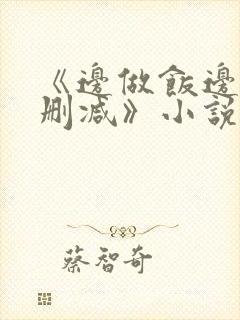 《邊做飯邊
刪減》小說
蔡智奇